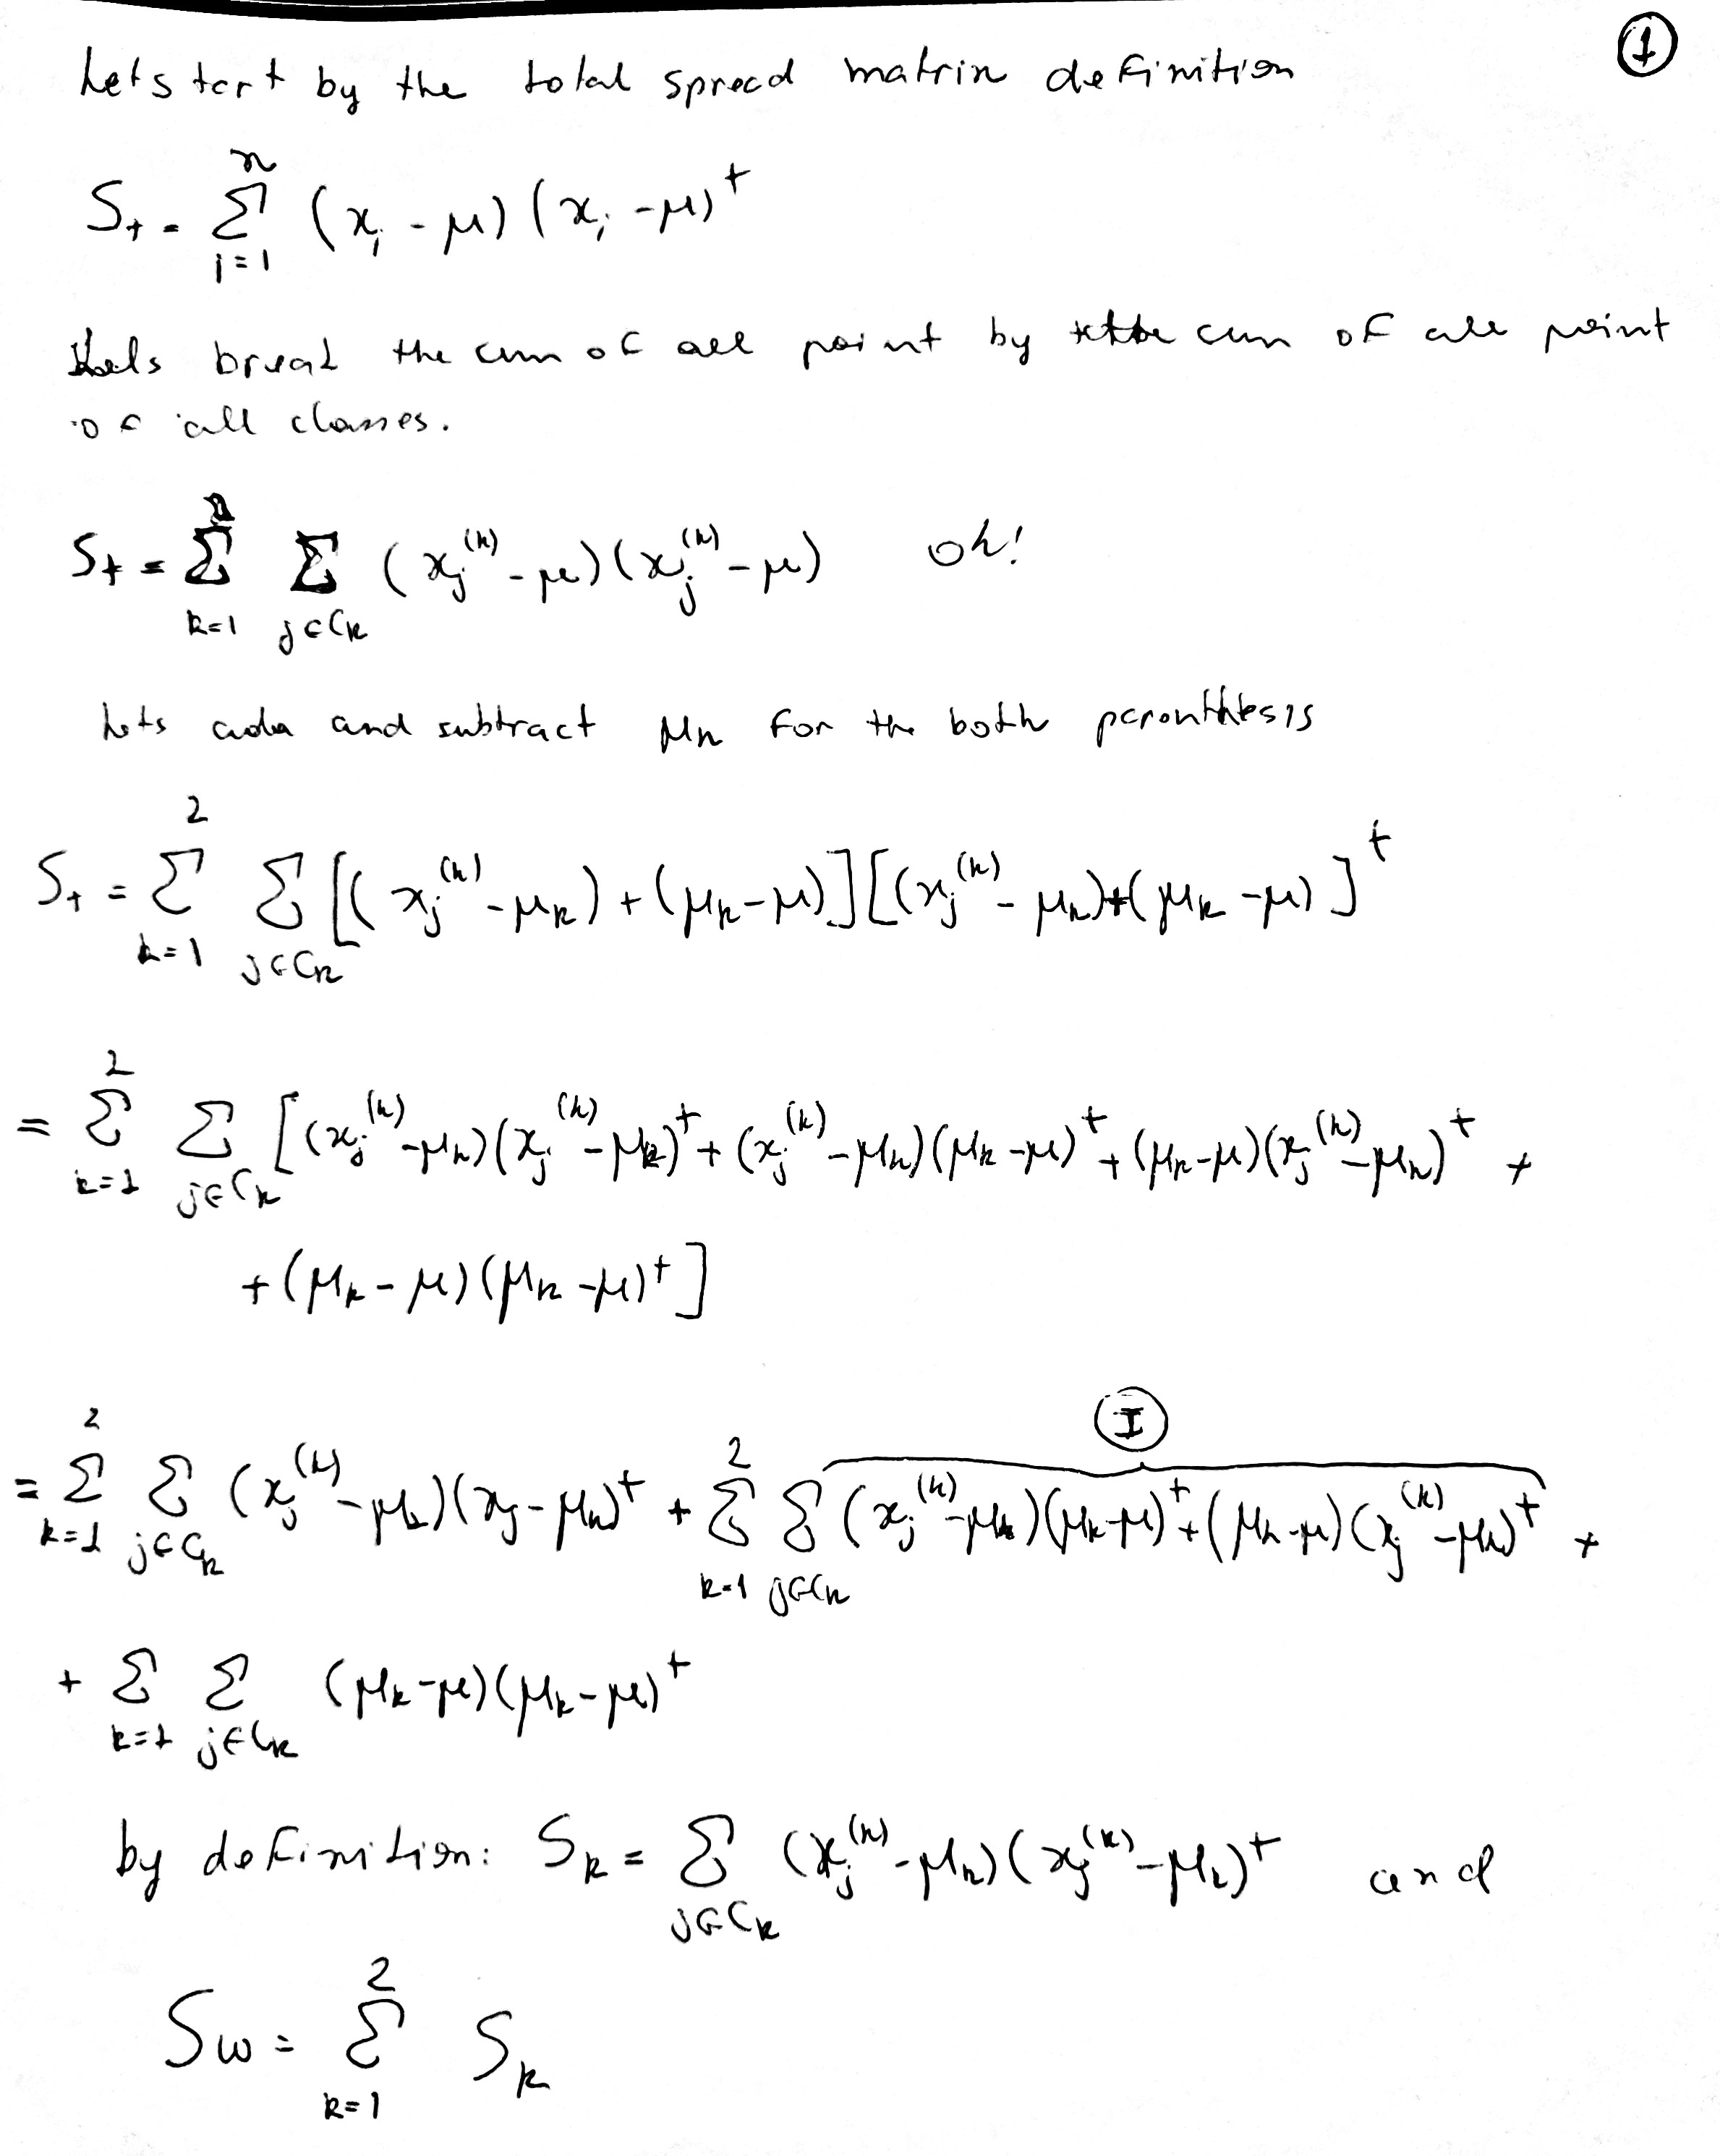 ①
Lets tart by the total spread matrix definition
S_t = Σ_{i=1}^{n} (x_i - μ)(x_i - μ)^t
Lets break the sum of all point by the sum of all point
of all classes.
S_t = Σ_{k=1}^{2} Σ_{j∈C_k} (x_j^{(k)} - μ)(x_j^{(k)} - μ) ok!
Lets add and subtract μ_k for the both parenthesis
S_t = Σ_{k=1}^{2} Σ_{j∈C_k} [(x_j^{(k)} - μ_k) + (μ_k - μ)][(x_j^{(k)} - μ_k) + (μ_k - μ)]^t
= Σ_{k=1}^{2} Σ_{j∈C_k} [(x_j^{(k)} - μ_k)(x_j^{(k)} - μ_k)^t + (x_j^{(k)} - μ_k)(μ_k - μ)^t + (μ_k - μ)(x_j^{(k)} - μ_k)^t +
+ (μ_k - μ)(μ_k - μ)^t]
Ⓘ
= Σ_{k=1}^{2} Σ_{j∈C_k} (x_j^{(k)} - μ_k)(x_j - μ_k)^t + Σ_{k=1}^{2} Σ_{j∈C_k} (x_j^{(k)} - μ_k)(μ_k - μ)^t + (μ_k - μ)(x_j^{(k)} - μ_k)^t +
+ Σ_{k=1} Σ_{j∈C_k} (μ_k - μ)(μ_k - μ)^t
by definition: S_k = Σ_{j∈C_k} (x_j^{(k)} - μ_k)(x_j^{(k)} - μ_k)^t and
S_w = Σ_{k=1}^{2} S_k